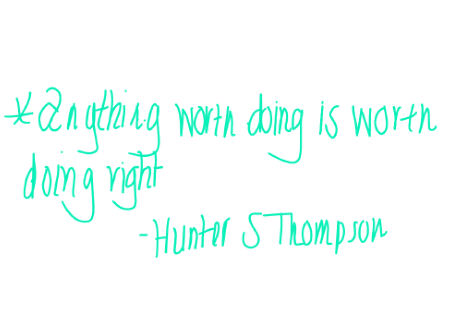 *anything worth doing is worth
doing right
-Hunter S Thompson